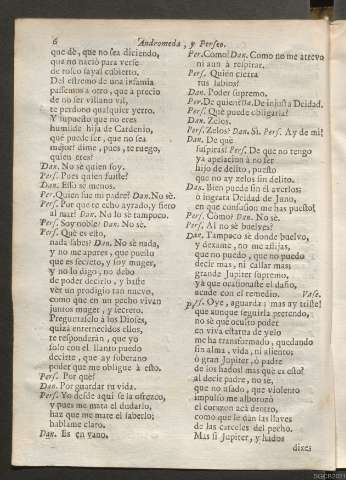 6
Andromeda, y Perseo.
que dè, que no sea diciendo,
que no naciò para verse
de tosco sayal cubierto.
Del estremo de una infamia
passemos a otro, que a precio
de no ser villano vil,
te perdono qualquier yerro.
Y supuesto que no eres
humilde hija de Cardenio,
què puede ser, que no sea
mejor? dime, pues, te ruego,
quien eres?
Dan. No sè quien soy.
Pers. Pues quien fuiste?
Dan. Esso sè menos.
Per. Quien fue mi padre? Dan. No sè.
Pers. Por què te echo ayrado, y fiero
al mar? Dan. No lo sè tampoco.
Pers. Soy noble? Dan. No sè.
Pers. Què es esto,
nada sabes? Dan. No sè nada,
y no me apures, que puesto
que es secreto, y soy muger,
y no lo digo, no debo
de poder decirlo, y baste
ver un prodigio tan nuevo,
como que en un pecho vivan
juntos muger, y secreto.
Preguntaselo à los Dioses,
quizà enternecidos ellos,
te responderàn, que yo
solo con el llanto puedo
decirte, que ay soberano
poder que me obligue à esto.
Pers. Por què?
Dan. Por guardar tu vida.
Pers. Yo desde aqui se la ofrezco,
y pues me mata el dudarlo,
haz que me mate el saberlo;
hablame claro.
Dan. Es en vano.
Per. Como? Dan. Como no me atrevo
ni aun à respirar.
Pers. Quièn cierra
tus labios?
Dan. Poder supremo.
Per. De quien es? Dan. De injusta Deidad.
Pers. Què puede obligarla?
Dan. Zelos.
Pers. Zelos? Dan. Sì. Pers. Ay de mi!
Dan. De què
suspiras? Pers. De que no tengo
ya apelacion à no ser
hijo de delito, puesto
que no ay zelos sin delito.
Dan. Bien puede sin èl averlos:
ò ingrata Deidad de Juno,
en què confusion me has puesto!
Pers. Còmo? Dan. No sè.
Pers. Aì no se buelves?
Dan. Tampoco sè donde buelvo,
y dexame, no me aflijas,
que no puedo, que no puedo
decir mas, ni callar mas:
grande Jupiter supremo,
ya que ocasionaste el daño,
acude con el remedio. Vase.
Pers. Oye, aguarda: mas ay triste!
que aunque seguirla pretendo,
no sè què oculto poder
en viva estatua de yelo
me ha transformado, quedando
sin alma, vida, ni aliento:
ò gran Jupiter, ò padre
de los hados! mas què es esto?
al decir padre, no sè,
que no usado, què violento
impulso me alborozò
el corazon acà dentro,
como que le dàn las llaves
de las carceles del pecho.
Mas si Jupiter, y hados
dixes